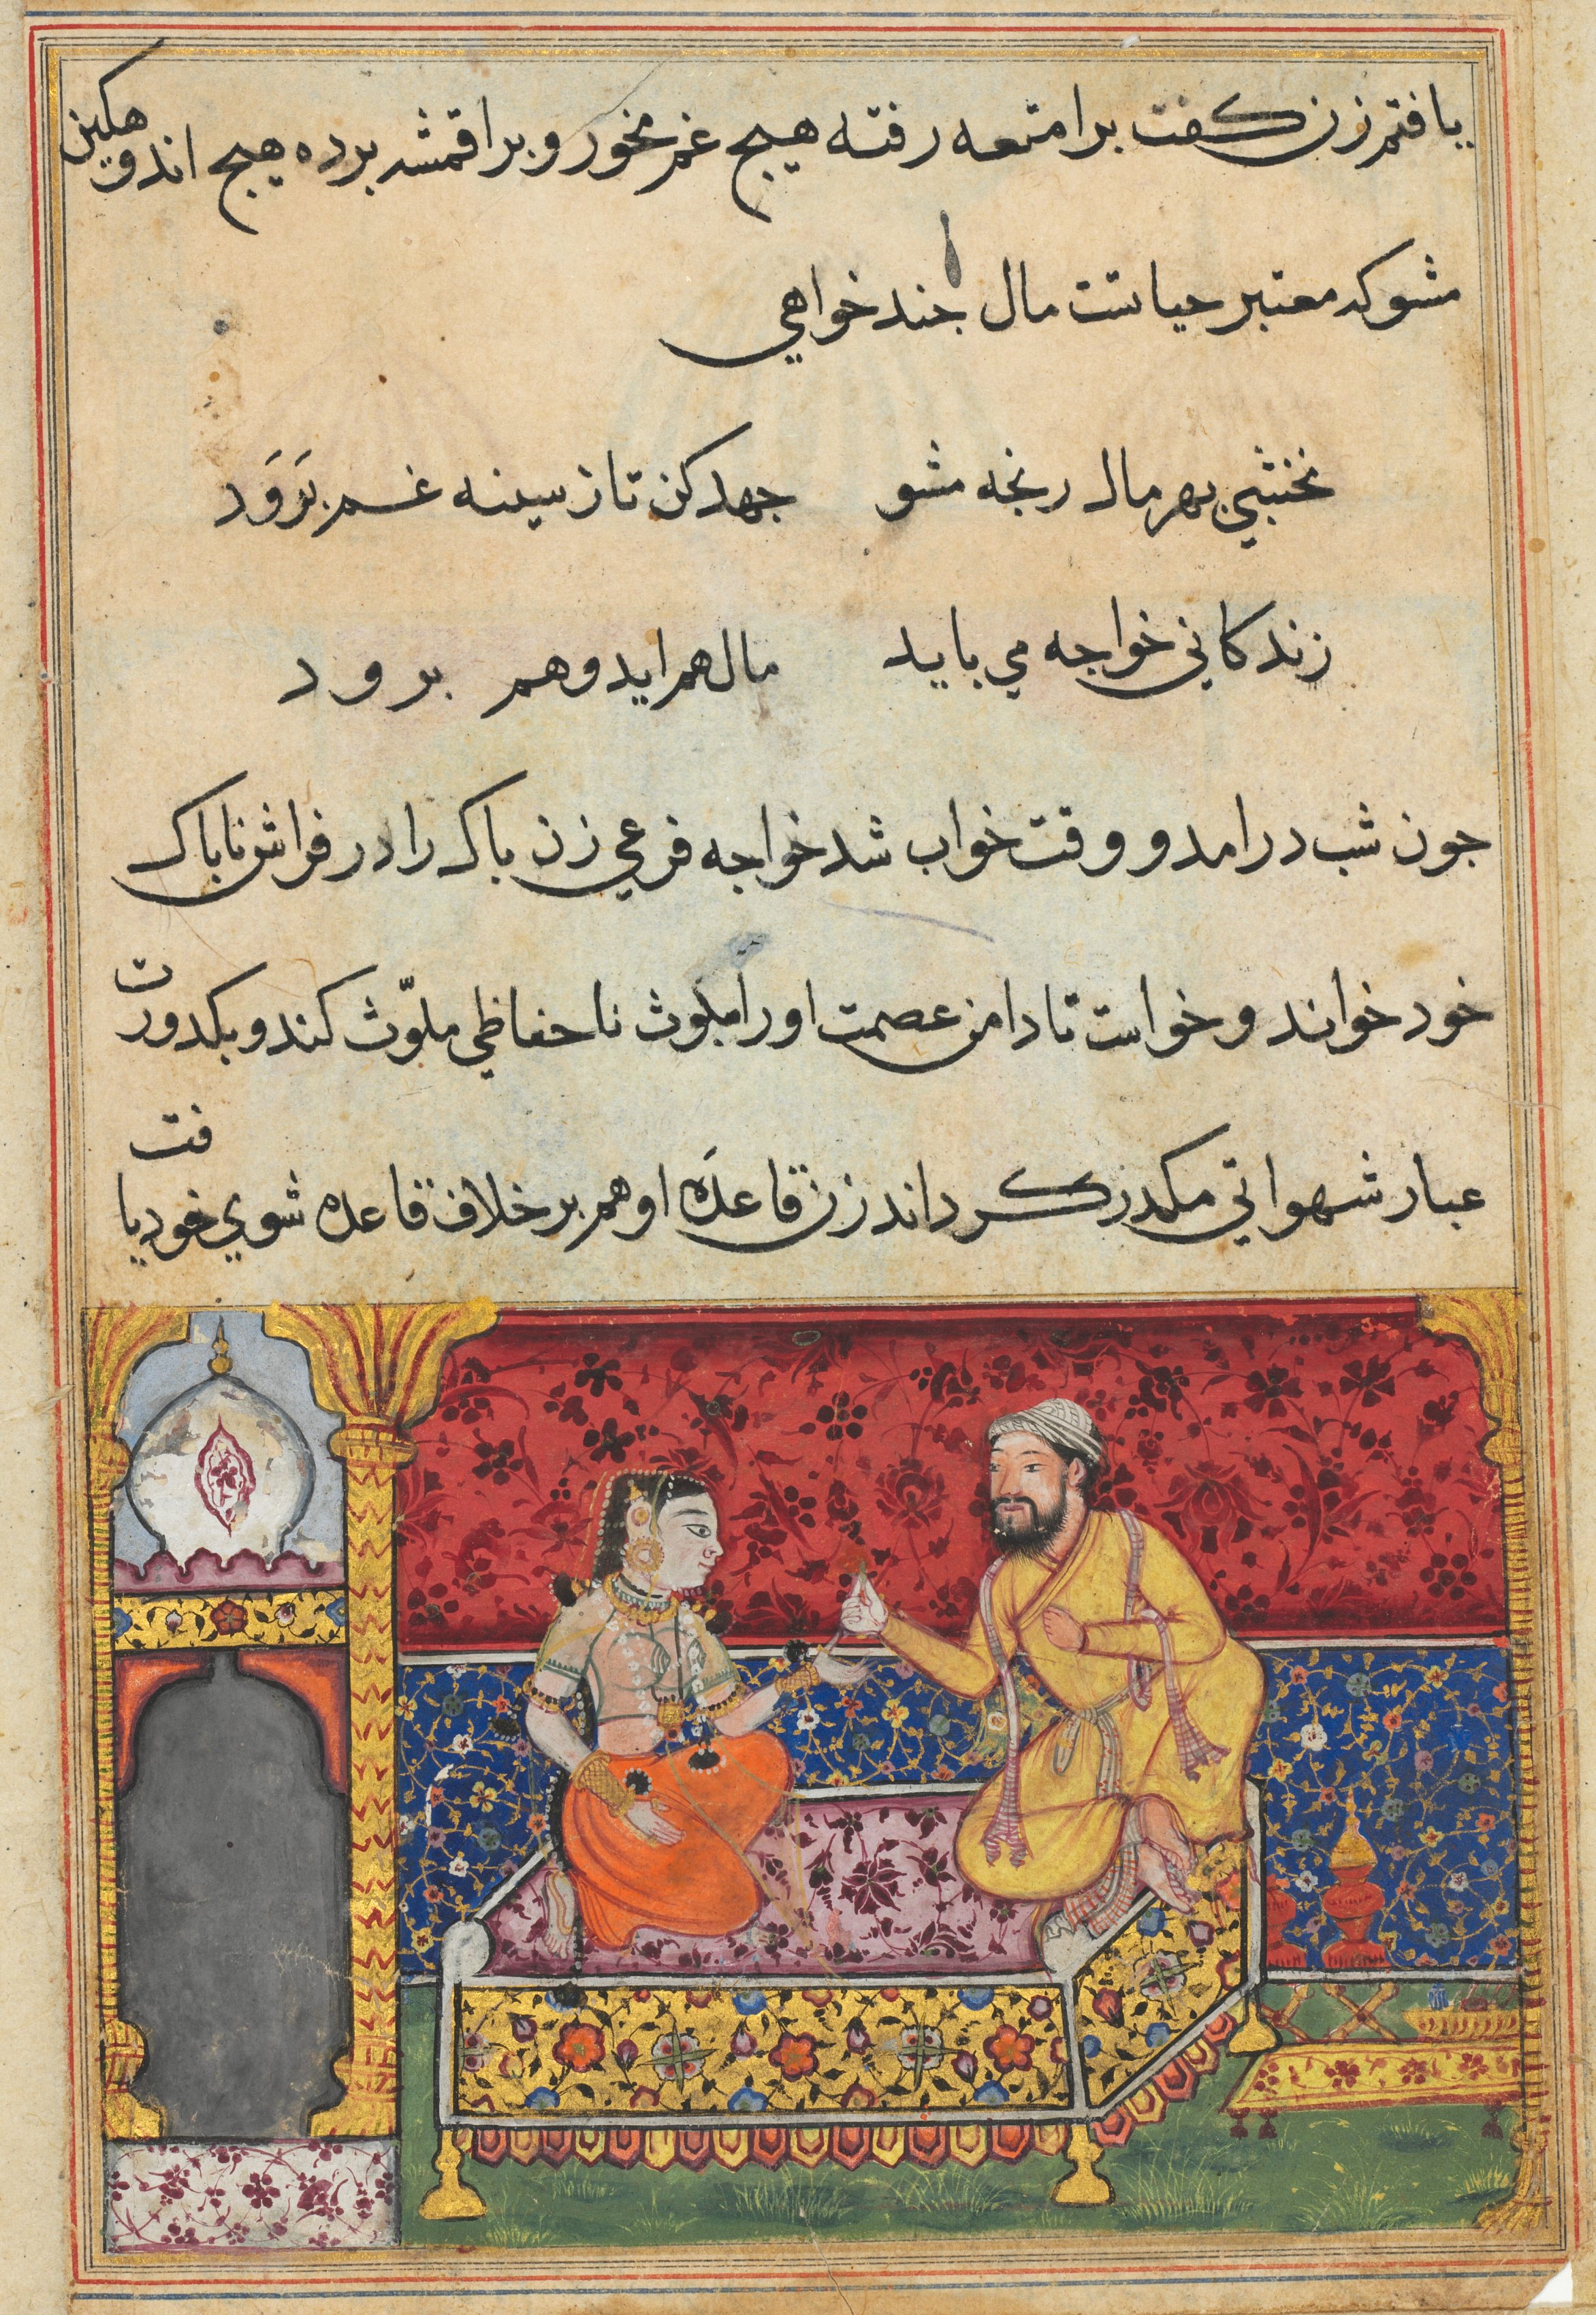 یافتم زن گفت بر امتعه رفته هیچ غم مخور و بر اقمشه برده هیچ اندوهکین
مشو که معتبر حیاتست مال جند خواهی
نخشبی بهر مال رنجه مشو جهد کن تا ز سینه غم بَرَوَد
زندکانی خواجه می باید مال هم اید و هم برود
جون شب درامد و وقت خواب شد خواجه فرعی زن باک را در فراش ناباک
خود خواند و خواست تا دامن عصمت او را بلوث ناحفاظی ملوّث کند و بکدورت
عبار شهواتی مکدر کرداند زن قاعدَه او هم بر خلاف قاعده شوی خود یافت